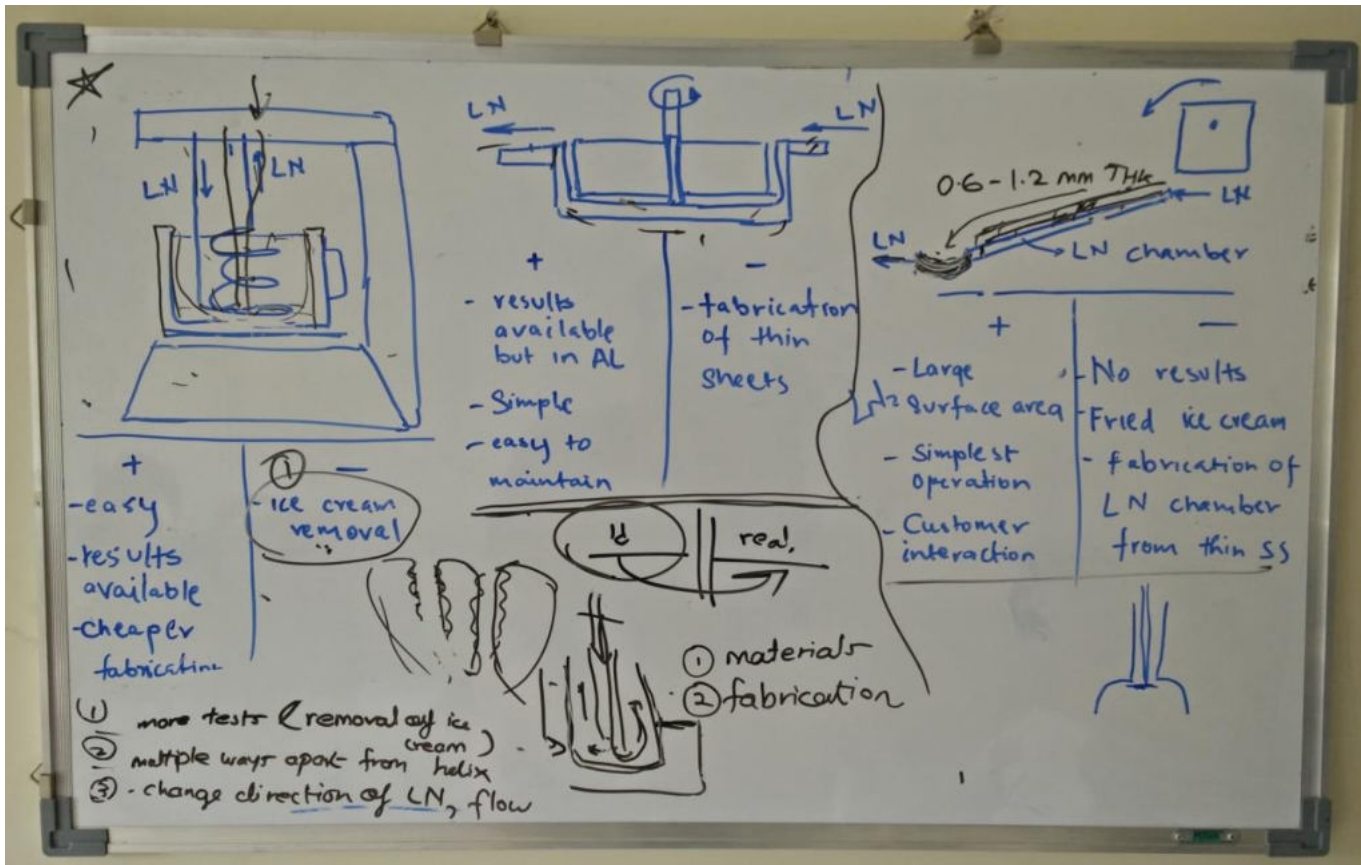 LN
LN
+
-
①
- easy
- results
available
- cheaper
fabrication
- ice cream
removal
① more tests (removal of ice
cream)
② multiple ways apart from helix
③ - change direction of LN₂ flow
LN
LN
+
-
- results
available
but in AL
- Simple
- easy to
maintain
- fabrication
of thin
sheets
① materials
② fabrication
0.6-1.2 mm THK
LN
LN
LN chamber
+
-
- Large
Surface area
- Simplest
operation
- Customer
interaction
- No results
- Fried ice cream
- fabrication of
LN chamber
from thin SS